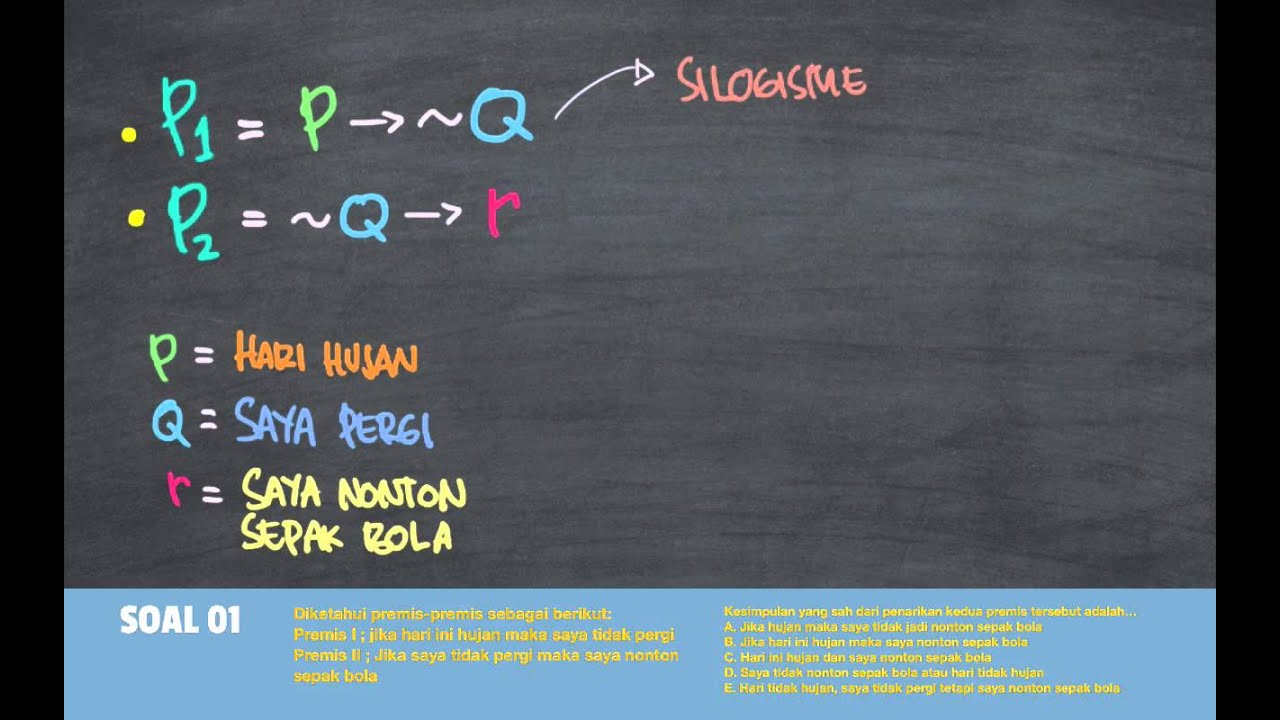 • P1 = P → ~Q → SILOGISME
• P2 = ~Q → r
P = HARI HUJAN
Q = SAYA PERGI
r = SAYA NONTON
SEPAK BOLA
SOAL 01
Diketahui premis-premis sebagai berikut:
Premis I ; jika hari ini hujan maka saya tidak pergi
Premis II ; Jika saya tidak pergi maka saya nonton
sepak bola
Kesimpulan yang sah dari penarikan kedua premis tersebut adalah...
A. Jika hujan maka saya tidak jadi nonton sepak bola
B. Jika hari ini hujan maka saya nonton sepak bola
C. Hari ini hujan dan saya nonton sepak bola
D. Saya tidak nonton sepak bola atau hari tidak hujan
E. Hari tidak hujan, saya tidak pergi tetapi saya nonton sepak bola